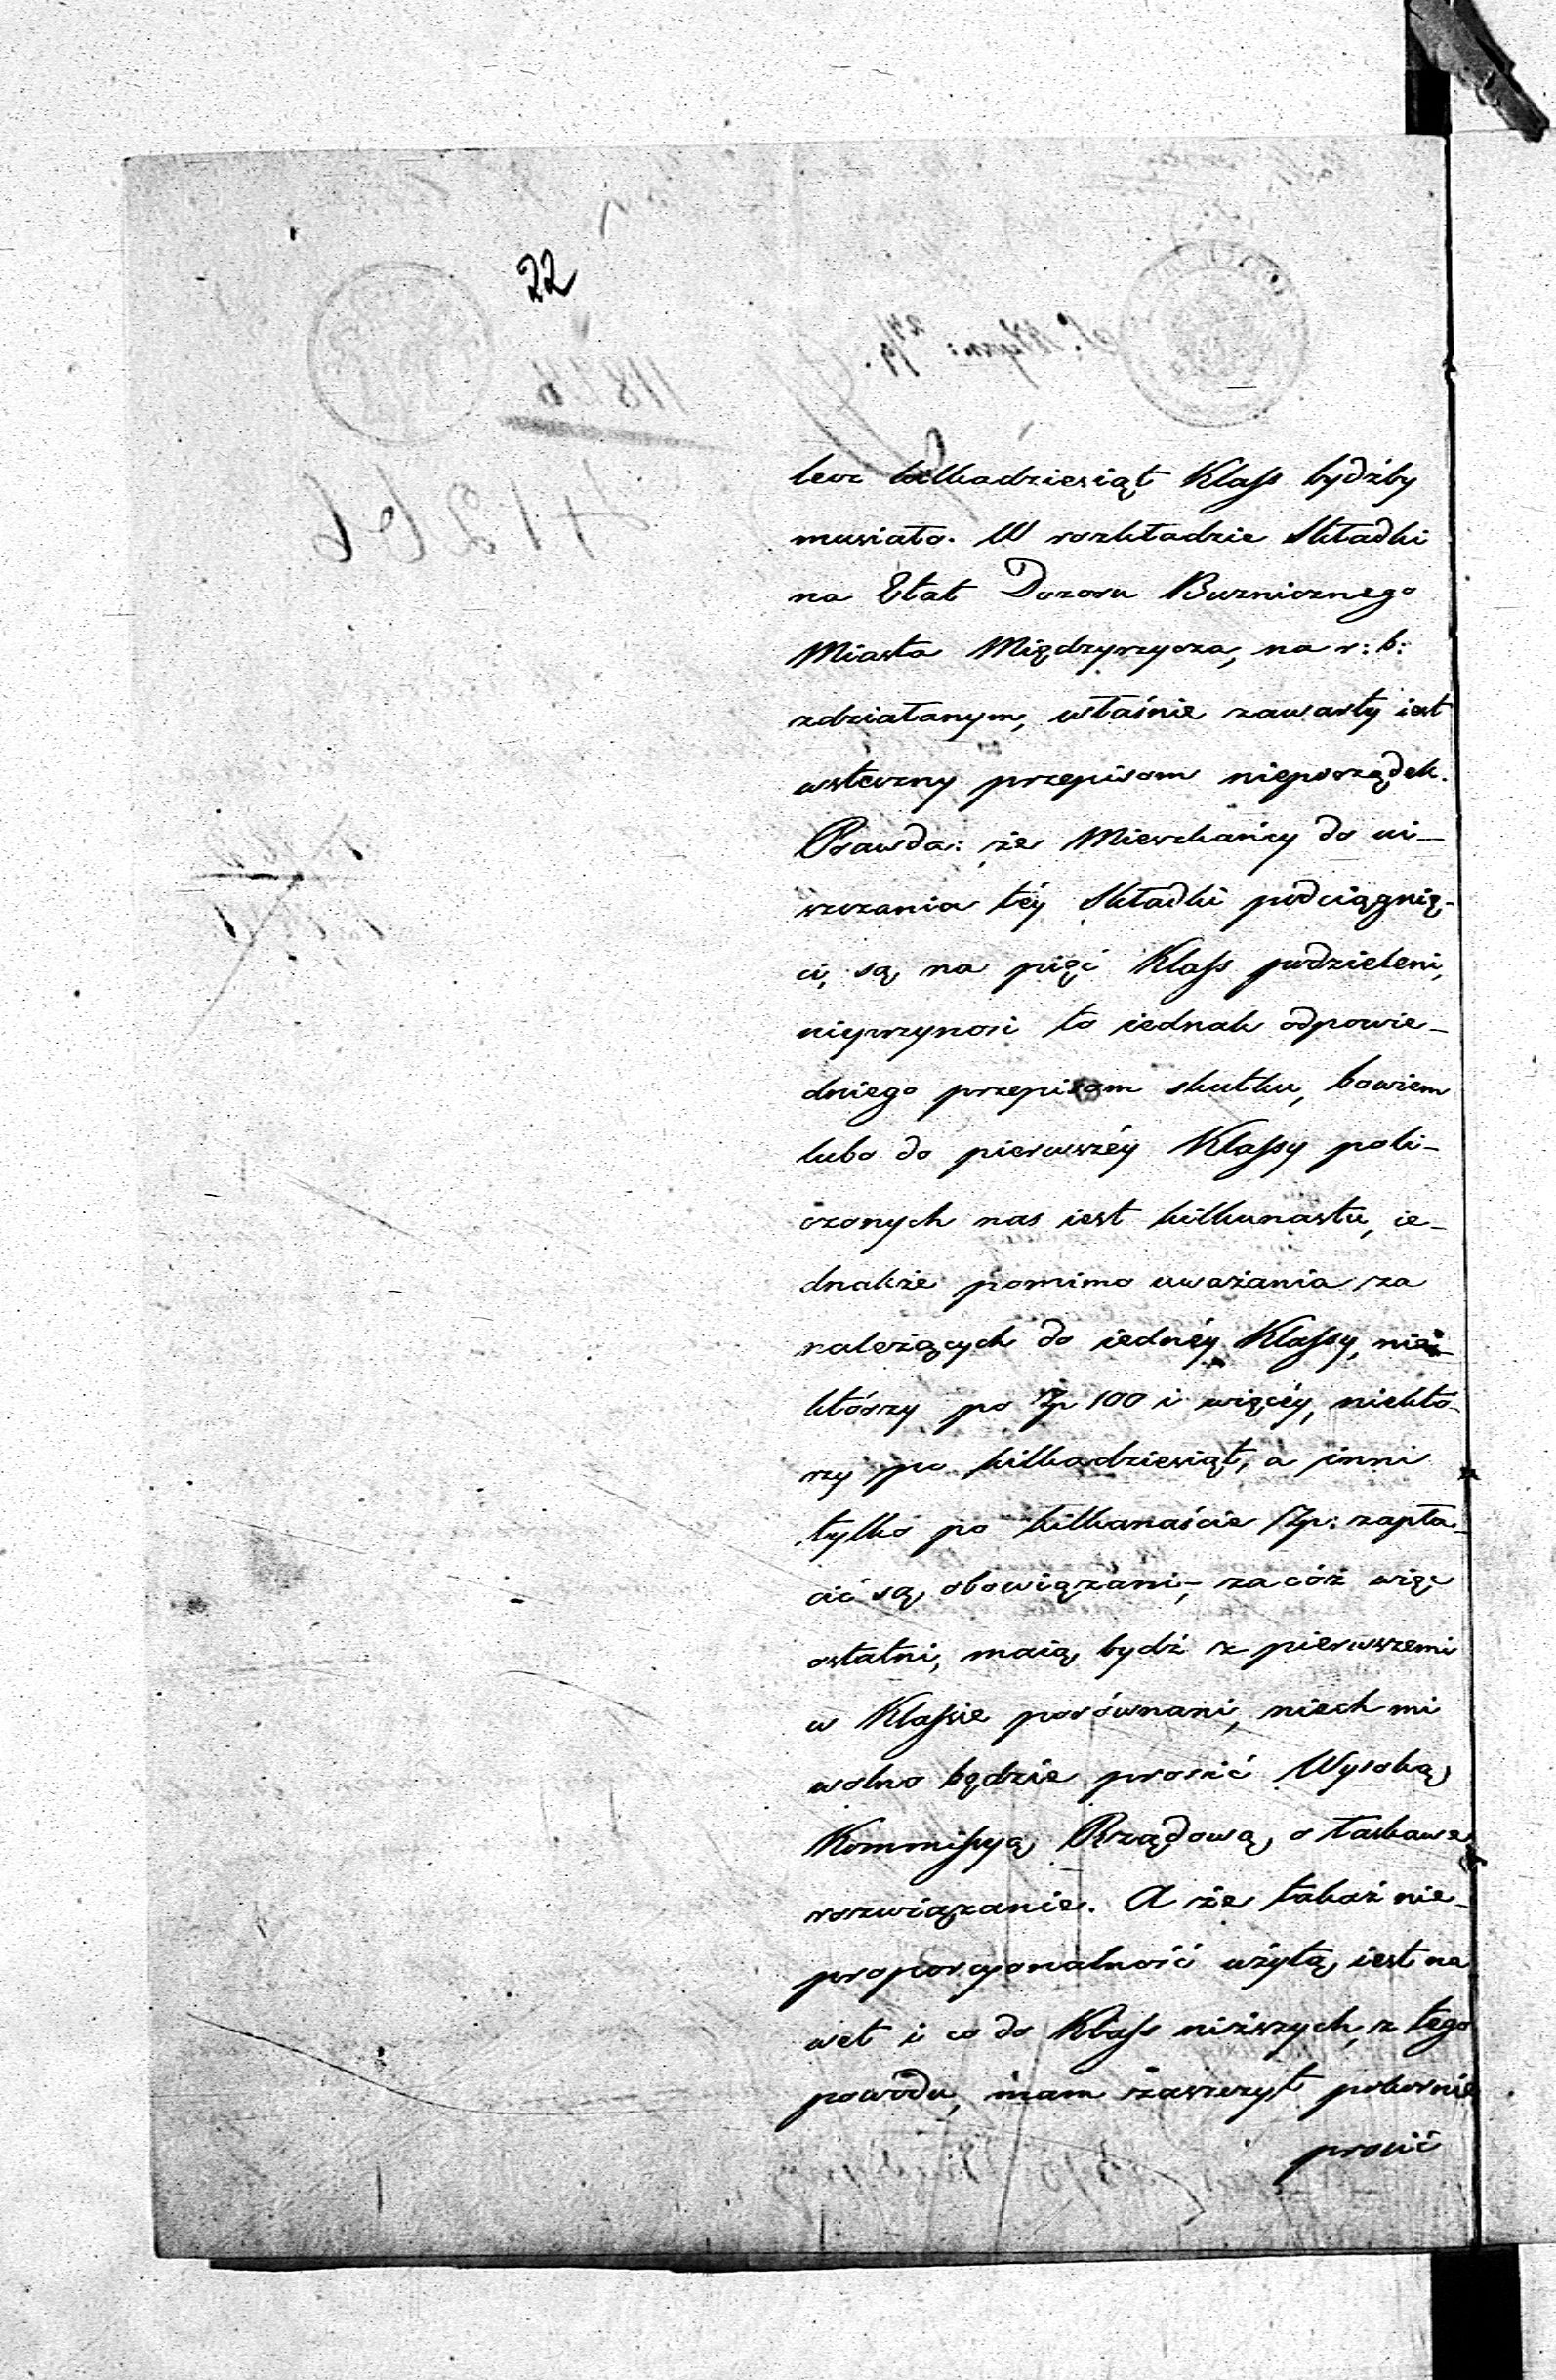 22
lecz kilkadziesiąt Klass bydźby
musiało. W rozkładzie Składki
na Etat Dozoru Bużnicznego
Miasta Międzyrzycza, na r: b:
zdziałanym, właśnie zawarty iest
wsteczny przepisom nieporządek.
Prawda: że Mieszkańcy do ui-
szczania téy Składki podciągnię-
ci, są na pięć Klass podzieleni,
nieprzynosi to iednak odpowie-
dniego przepisom skutku, bowiem
lubo do pierwszéy Klassy poli-
czonych nas iest kilkunastu, ie-
dnakże pomimo uważania za
należących do iednéy Klassy, nie-
którzy po Zp 100 i więcéy, niektó-
rzy po kilkadziesiąt, a inni
tylko po kilkanaście Zp: zapła-
cić są obowiązani;- zacóż więc
ostatni, maią bydź z pierwszemi
w Klassie porównani, niech mi
wolno będzie prosić Wysoką
Kommissyą Rządową o łaskawe
rozwiązanie. A że takaż nie-
proporcyonalność użytą iest na
wet i co do Klass niższych, z tego
powodu, mam zaszczyt pokornie
prosić